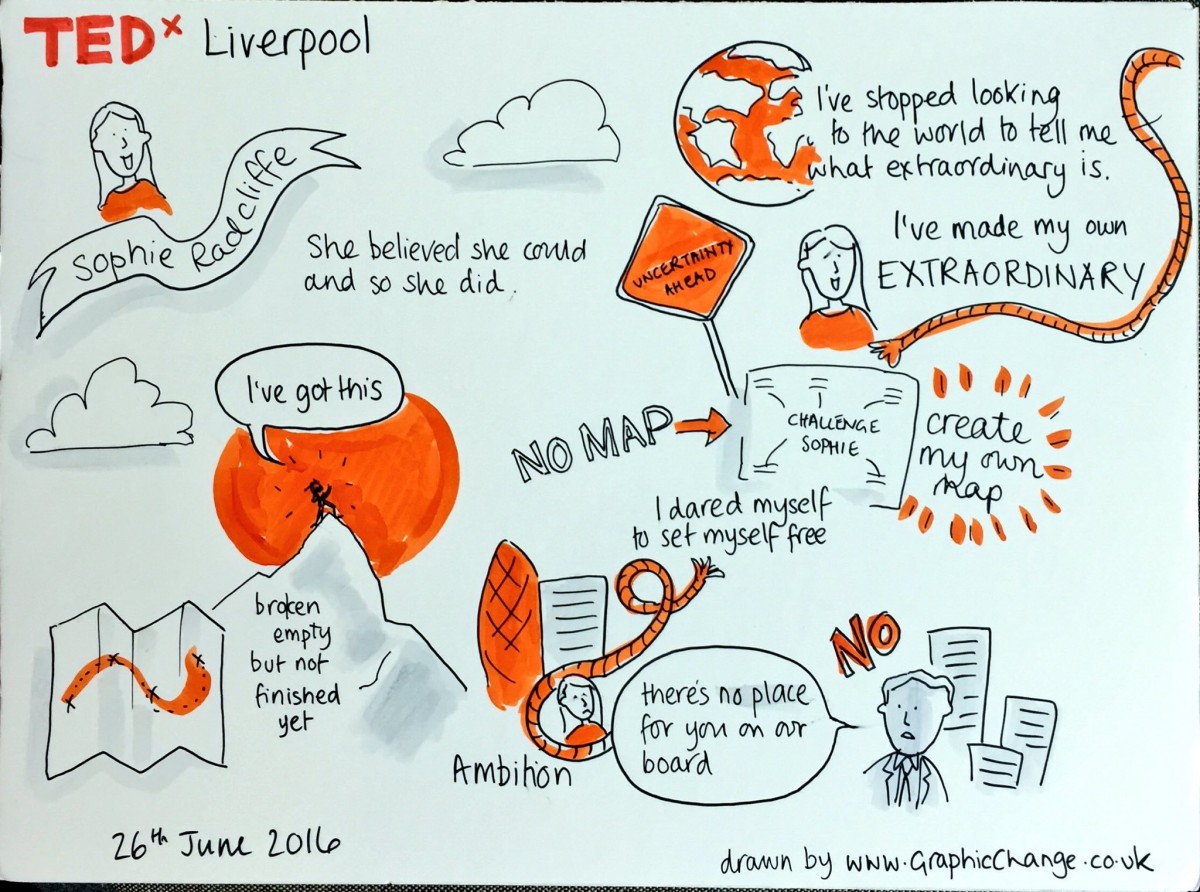 TEDx Liverpool
Sophie Radcliffe
She believed she could
and so she did.
I've stopped looking
to the world to tell me
what extraordinary is.
I've made my own
EXTRAORDINARY
UNCERTAINTY
AHEAD
I've got this
NO MAP
CHALLENGE
SOPHIE
create
my own
map
I dared myself
to set myself free
broken
empty
but not
finished
yet
Ambition
there's no place
for you on our
board
NO
26th June 2016
drawn by www.GraphicChange.co.uk